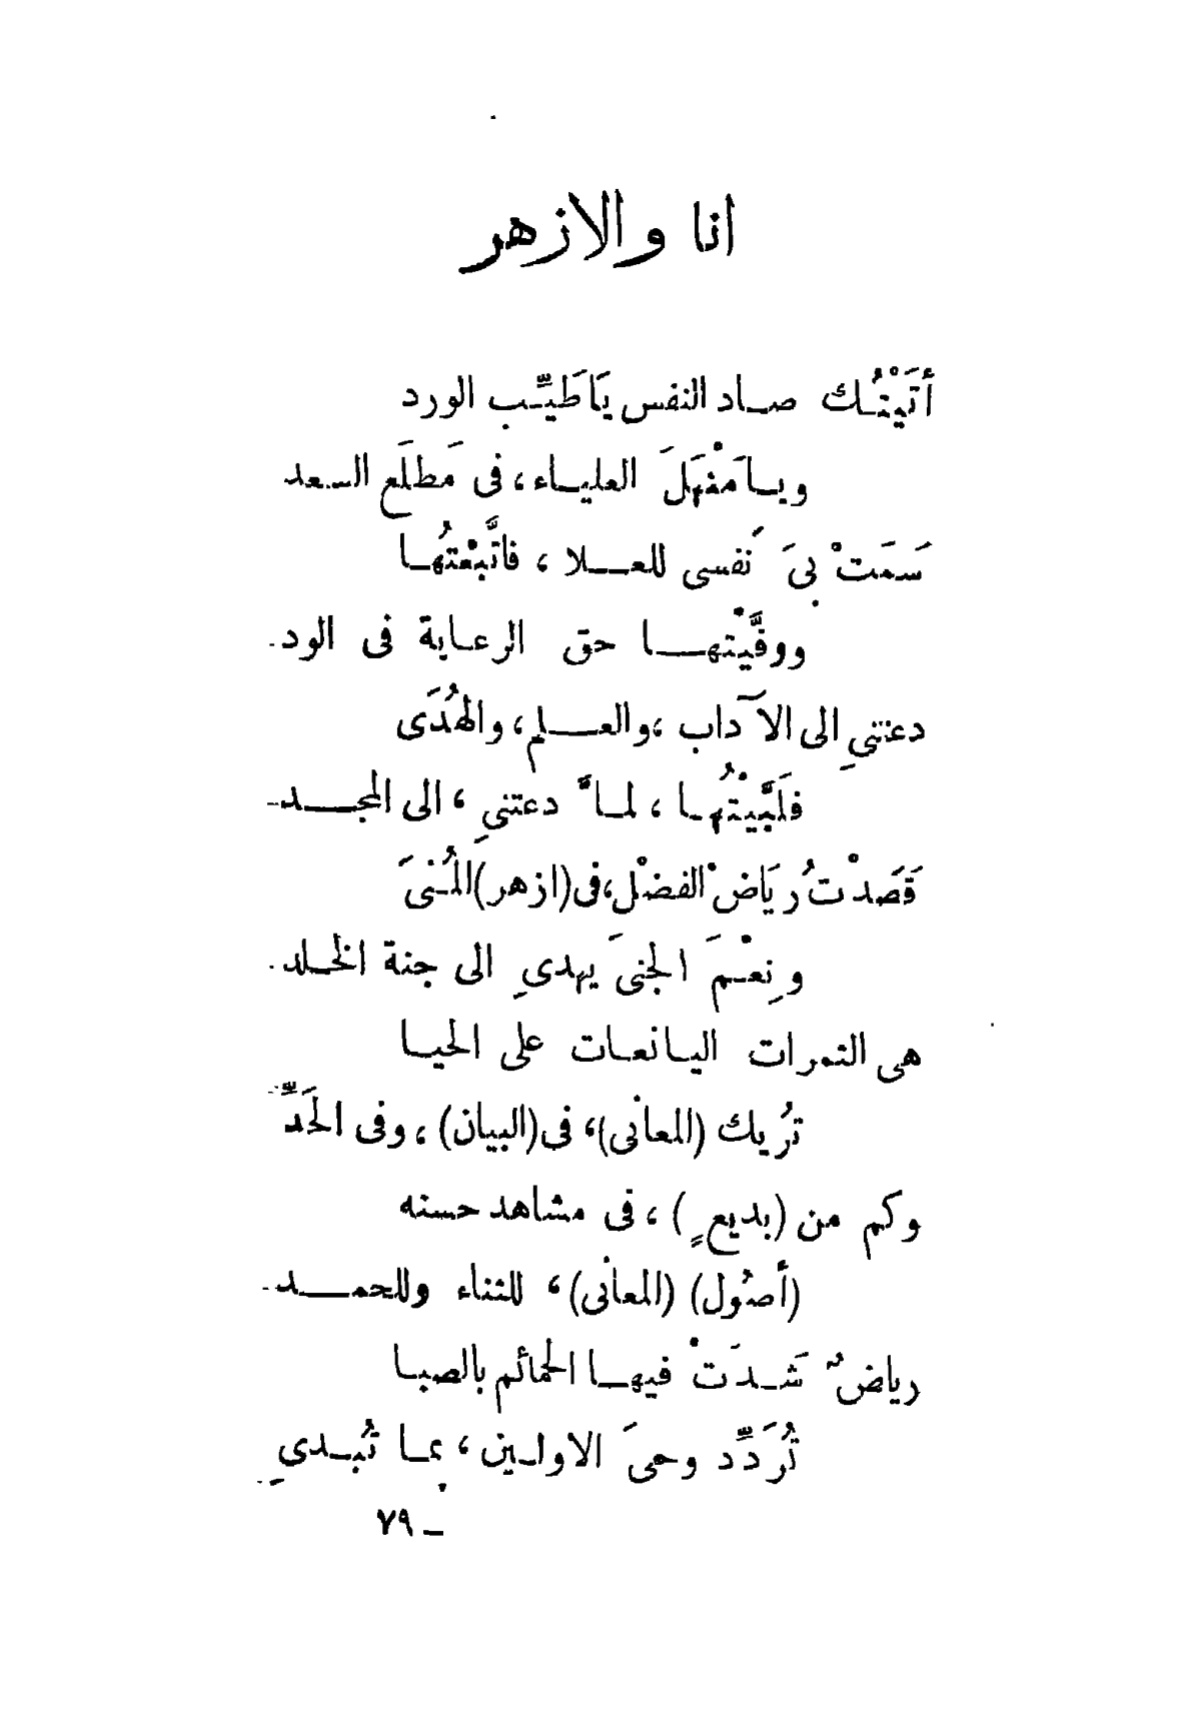 انا والازهر
أتَيْتُك صاد النفس يَاطَيِّب الورد
ويامَنْهَلَ العلياء، فى مَطلَع السعد
سَمَتْ بِىَ نَفسى للعلا ، فاتَّبَعْتُها
ووفَّيْتها حق الرعاية فى الود
دعتنىِ الى الآداب ،والعلم، والهُدَى
فَلَبَّيْتُها ، لماَّ دعتنىِ ، الى المجد
قَصَدْتُ رِيَاضْ الفضْل،فى(ازهر)المُنىَ
ونِعْمَ الجنىَ يهدىِ الى جنة الخلد
هى الثمرات اليانعات على الحيا
تُريك (المعانى)، فى(البيان) ، وفى الحَدِّ
وكم من (بديعٍ) ، فى مشاهد حسنه
(أصُول) (المعانى)، للثناء وللحمد
رياضٌ شَدَتْ فيها الحمائم بالصبا
تُرَدِّد وحىَ الاولين ، بما تُبدىِ
ـ ٧٩